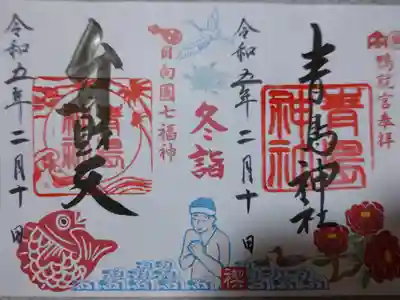 鴨就宮奉拝
青島神社
青島神社
令和五年二月十日
冬詣
禊
日向國七福神
弁財天
青島神社
令和五年二月十日